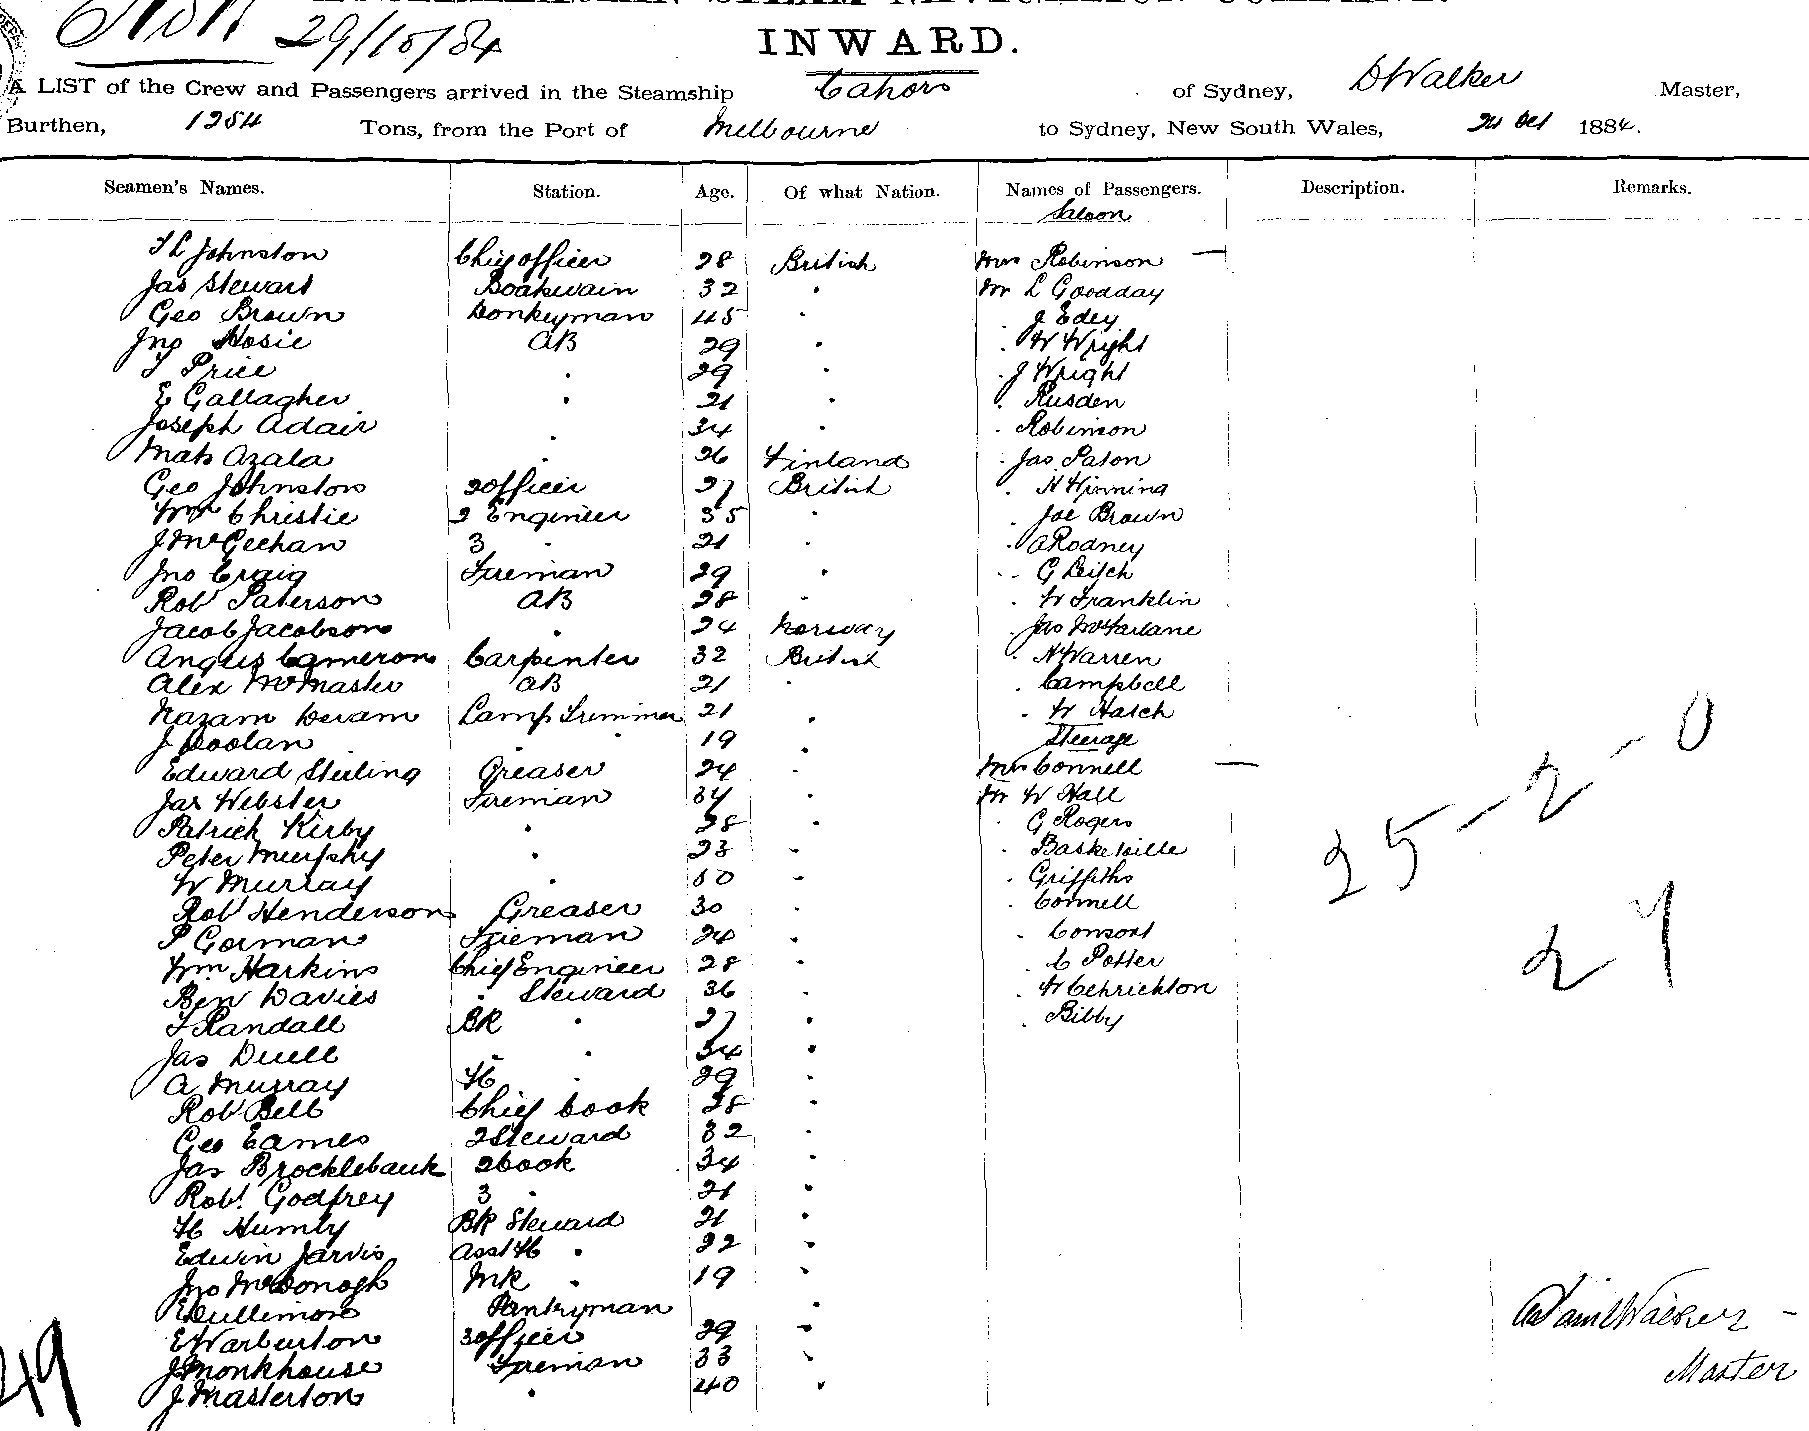 29/10/84
INWARD.
A LIST of the Crew and Passengers arrived in the Steamship Cahors of Sydney, D Walker Master,
Burthen, 1254 Tons, from the Port of Melbourne to Sydney, New South Wales, 24 Oct 1884.
Seamen's Names. Station. Age. Of what Nation. Names of Passengers. Description. Remarks.
Saloon
Johnston Chief officer 28 British Mrs Robinson —
Jas Stewart Boatswain 32 " Mr L Goodday
Geo Brown Donkeyman 45 " " J Edey
Jno Hosie AB 29 " " W Wright
T Price " 29 " " J Wright
E Gallagher " 21 " " Rusden
Joseph Adair " 34 " " Robinson
Mats Azala " 26 Finland " Jas Paton
Geo Johnston 2 officer 27 British " H Winning
Wm Christie 2 Engineer 35 " " Joe Brown
J McGeehan 3 " 21 " " A Rodney
Jno Craig Fireman 29 " " G Leitch
Robt Paterson AB 28 " " W Franklin
Jacob Jacobson " 24 Norway " Jas McFarlane
Angus Cameron Carpenter 32 British " H Warren
Alex McMaster AB 21 " " Campbell
Nazam Deram Lamp Trimmer 21 " " W Hatch
J Doolan " " 19 " Steerage
Edward Sterling Greaser 24 " Mrs Connell —
Jas Webster Fireman 34 " Mr W Hall
Patrick Kirby " 28 " " G Rogers
Peter Murphy " 23 " " Baskerville
W Murray " 50 " " Griffiths
Robt Henderson Greaser 30 " " Connell
P Gorman Fireman 24 " " Consort
Wm Harkins Chief Engineer 28 " " C Potter
Ben Davies " Steward 36 " " W Cehrickton
F Randall BR " 27 " " Bibby
Jas Duell " " 34 "
A Murray " 29 "
Robt Bell Chief Cook 28 "
Geo Eames 2 Steward 32 "
Jas Brocklebank 2 Cook 34 "
Robt Godfrey 3 " 21 "
H Humby BR Steward 21 "
Edwin Jarvis Asst " 22 "
Jno McDonogh " 19 "
E Cullimore Pantryman "
E Warburton 3 officer 29 "
J Monkhouse Fireman 33 "
J Masterton " 40 "
25 - 2 - 0
27
Daniel Walker -
Master
49